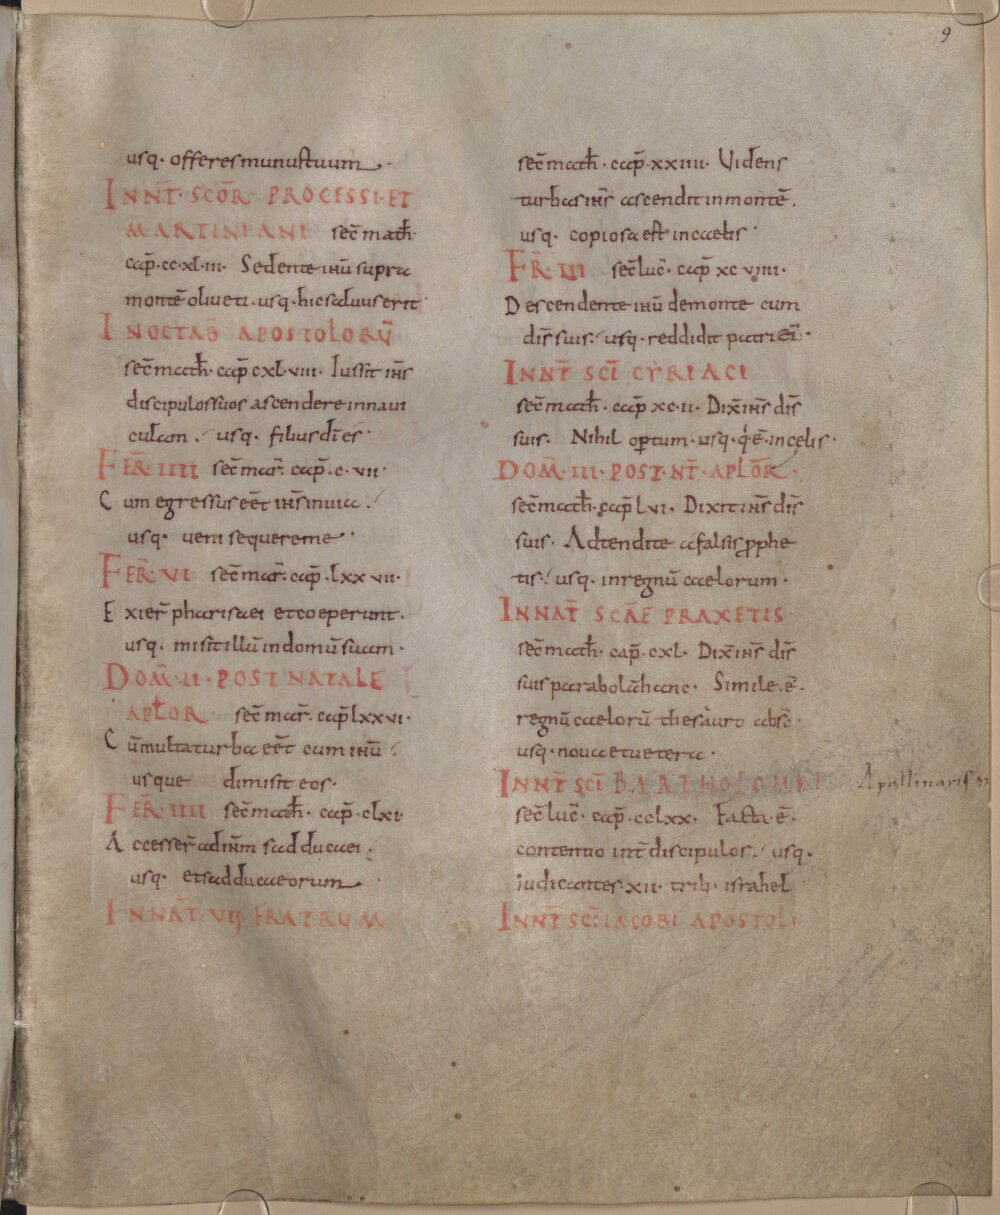 9
usq· offeres munus tuum·
INNT̄· SCŌR̄ PROCESSI· ET
MARTINIANI sec̄ math̄·
cap̄· cc·xl·iii· Sedente ih̄u supra
montē oliueti· usq· hic saluus erit·
IN OCTAB̄ APOSTOLORŪ
sec̄ math̄· cap̄· cxl·viii· Iussit ih̄s
discipulos suos ascendere in naui
culam· usq· filius dī es·
FER̄ IIII sec̄ mar̄· cap̄· c·vii·
Cum egressus eēt ih̄s in uia·
usq· ueni sequere me·
FER̄· VI sec̄ mar̄· cap̄· lxxvii·
Exier̄ pharisaei et coeperunt·
usq· misit illū in domū suam·
DOM̄· II· POST NATALE
AP̄LOR̄ sec̄ mar̄· cap̄ lxxvi·
Cū multa turba eēt cum ih̄u
usque dimisit eos·
FER̄· IIII sec̄ math̄· cap̄· clxi·
Accesser̄ ad ih̄m sadducaei·
usq· et sadducaeorum·
INNAT̄· VII· FRATRUM
sec̄ math̄· cap̄· xxiiii· Uidens
turbas ih̄s ascendit in montē·
usq· copiosa est in caelis·
FR̄ III sec̄ luc̄· cap̄ xc·viiii·
Descendente ih̄u de monte cum
dis̄ suis· usq· reddidit patri ei·
INNT̄ SC̄I CYRIACI
sec̄ math̄· cap̄ xc·ii· Dix̄ ih̄s dis̄
suis· Nihil opertum· usq· q·ē· in celis·
DOM̄· III· POST· NT̄· AP̄LOR̄
sec̄ math̄· cap̄ lvi· Dixit ih̄s dis̄
suis· Adtendite a falsis prophe
tis· usq· in regnū caelorum·
INNAT̄ SC̄AE PRAXETIS
sec̄ math̄· cap̄· cxl· Dix̄ ih̄s dis̄
suis parabolā hanc· Simile· ē·
regnū caelorū thesauro absc̄·
usq· noua et uetera·
INNT̄ SC̄I BARTHOLOMEI Apollinaris
sec̄ luc̄· cap̄· cclxx· Facta· ē·
contentio int̄ discipulos· usq·
iudicantes· xii· trib· israhel
INNT̄ SC̄I IACOBI APOSTOLI